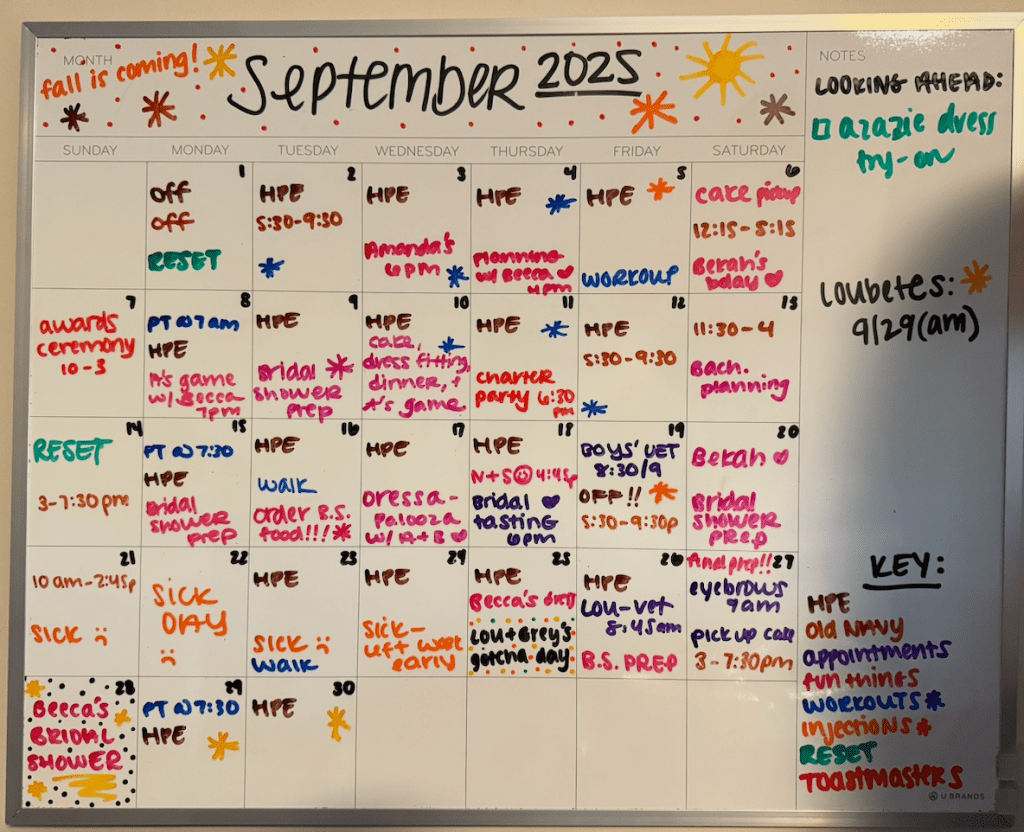 MONTH
fall is coming!
September 2025
SUNDAY MONDAY TUESDAY WEDNESDAY THURSDAY FRIDAY SATURDAY
1
off
off
RESET
2
HPE
5:30-9:30
3
HPE
Amanda's
6pm
4
HPE
Planning
w/ Becca
4pm
5
HPE
WORKOUT
6
cake pickup
12:15-5:15
Bekah's
bday
7
awards
ceremony
10-3
8
PT @ 7am
HPE
A's game
w/ Becca
7pm
9
HPE
Bridal
shower
prep
10
HPE
cake,
dress fitting,
dinner, +
A's game
11
HPE
charter
party 6:30
pm
12
HPE
5:30-9:30
13
11:30-4
Bach.
planning
14
RESET
3-7:30pm
15
PT @ 7:30
HPE
Bridal
shower
prep
16
HPE
walk
order B.S.
food!!!
17
HPE
Dressa-
palooza
w/ A+B
18
HPE
N+S @ 4:45p
Bridal
tasting
6pm
19
BOYS' VET
8:30/9
OFF!!
5:30-9:30p
20
Bekah
Bridal
shower
prep
21
10am-2:45p
SICK :(
22
SICK
DAY
:(
23
HPE
SICK :(
walk
24
HPE
Sick-
left work
early
25
HPE
Becca's
Lou+Grey's
gotcha day
26
HPE
Lou-vet
8:45am
B.S. PREP
27
final prep!!
eyebrows
9am
pick up cake
3-7:30pm
28
Becca's
BRIDAL
SHOWER
29
PT @ 7:30
HPE
30
HPE
NOTES
LOOKING AHEAD:
azazie dress
try-on
Loubetes:
9/29(am)
KEY:
HPE
Old NAVY
appointments
fun things
WORKOUTS
injections
RESET
TOASTMASTERS
U BRANDS